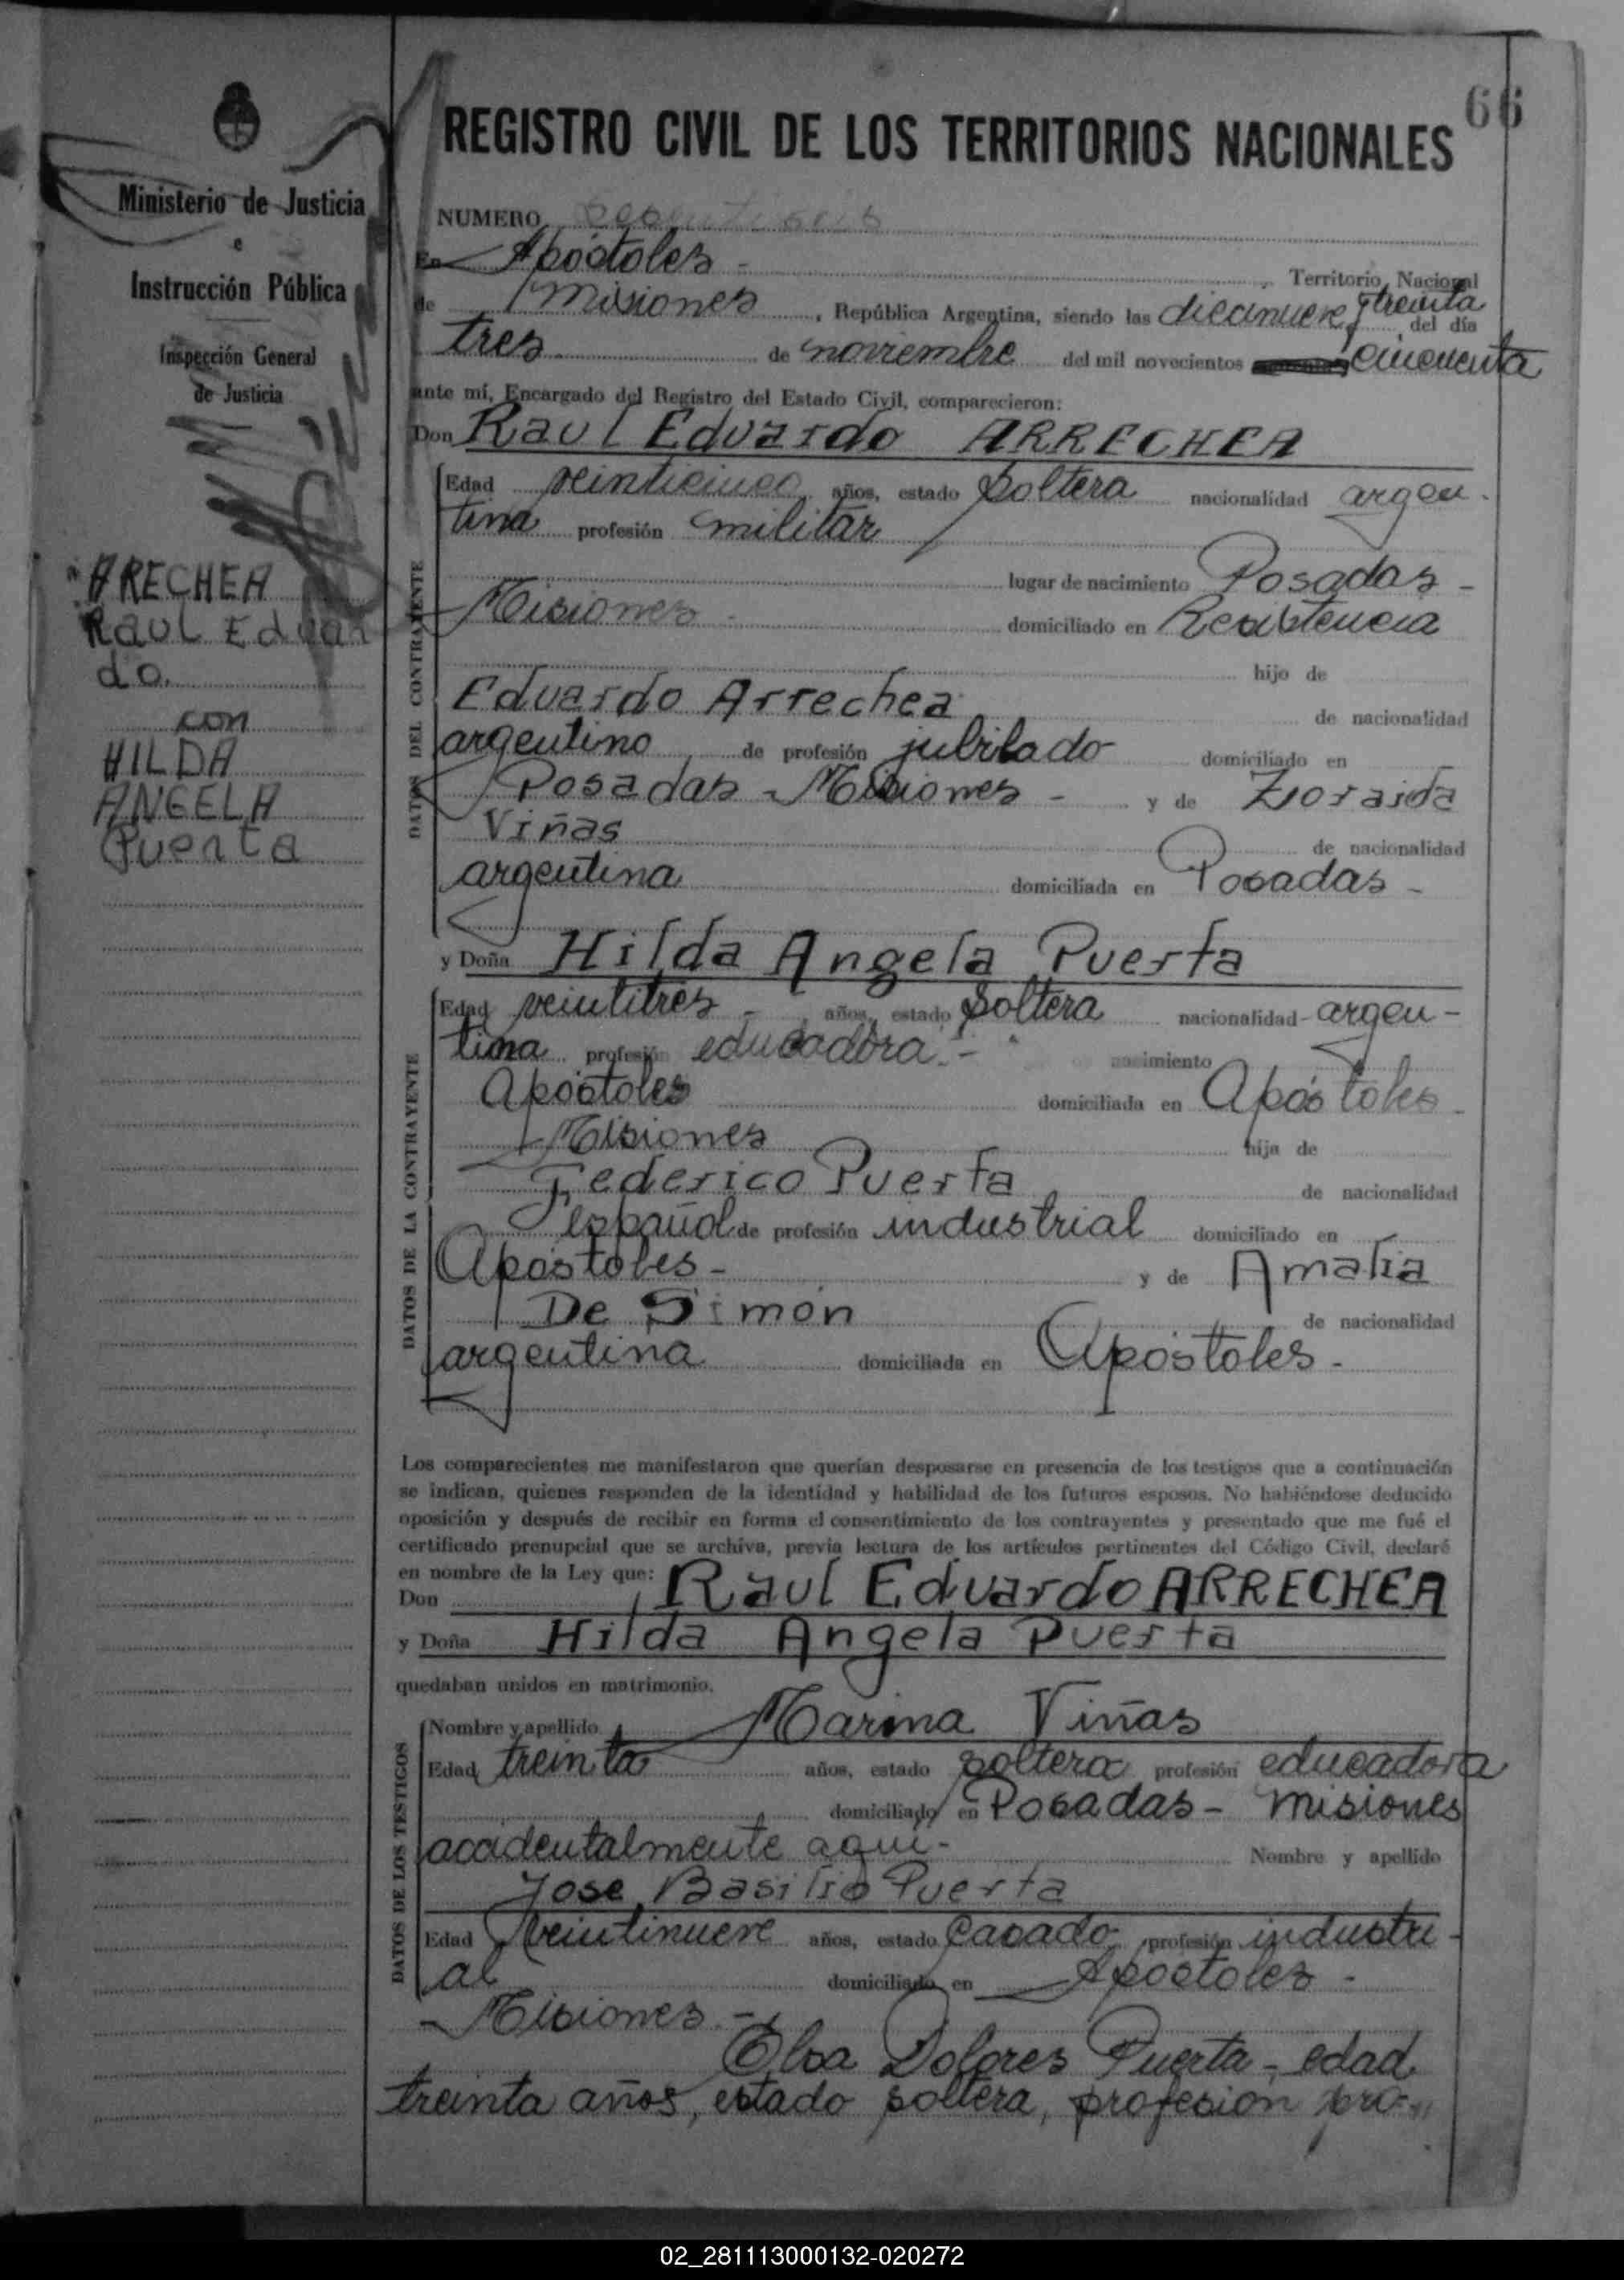 66
Ministerio de Justicia
e
Instrucción Pública
Inspección General
de Justicia
ARECHEA
Raul Eduar
do.
con
HILDA
ANGELA
Puerta
REGISTRO CIVIL DE LOS TERRITORIOS NACIONALES
NUMERO sesenta seis
En Apóstoles - , Territorio Nacional
de Misiones , República Argentina, siendo las diecinueve y treinta del día
tres de noviembre del mil novecientos cincuenta
ante mí, Encargado del Registro del Estado Civil, comparecieron:
Don Raul Eduardo ARRECHEA
DATOS DEL CONTRAYENTE
Edad veinticinco años, estado soltera nacionalidad argen-
tina profesión militar
lugar de nacimiento Posadas -
Misiones - domiciliado en Resistencia
hijo de
Eduardo Arrechea de nacionalidad
argentino de profesión jubilado domiciliado en
Posadas - Misiones - y de Zioraida
Viñas de nacionalidad
argentina domiciliada en Posadas -
y Doña Hilda Angela Puerta
DATOS DE LA CONTRAYENTE
Edad veintitres - años, estado soltera nacionalidad argen-
tina profesión educadora. - nacimiento
Apóstoles domiciliada en Apóstoles -
Misiones hija de
Federico Puerta de nacionalidad
español de profesión industrial domiciliado en
Apóstoles - y de Amalia
De Simón de nacionalidad
argentina domiciliada en Apóstoles -
Los comparecientes me manifestaron que querían desposarse en presencia de los testigos que a continuación
se indican, quienes responden de la identidad y habilidad de los futuros esposos. No habiéndose deducido
oposición y después de recibir en forma el consentimiento de los contrayentes y presentado que me fué el
certificado prenupcial que se archiva, previa lectura de los artículos pertinentes del Código Civil, declaré
en nombre de la Ley que:
Don Raul Eduardo ARRECHEA
y Doña Hilda Angela Puerta
quedaban unidos en matrimonio.
DATOS DE LOS TESTIGOS
Nombre y apellido Marina Viñas
Edad treinta años, estado soltera profesión educadora
domiciliado en Posadas - Misiones
accidentalmente aquí - Nombre y apellido
Jose Basilio Puerta
Edad veintinueve años, estado casado profesión industri-
al domiciliado en Apóstoles -
Misiones. -
Elsa Dolores Puerta - edad
treinta años, estado soltera, profesion pro-
02_281113000132-020272